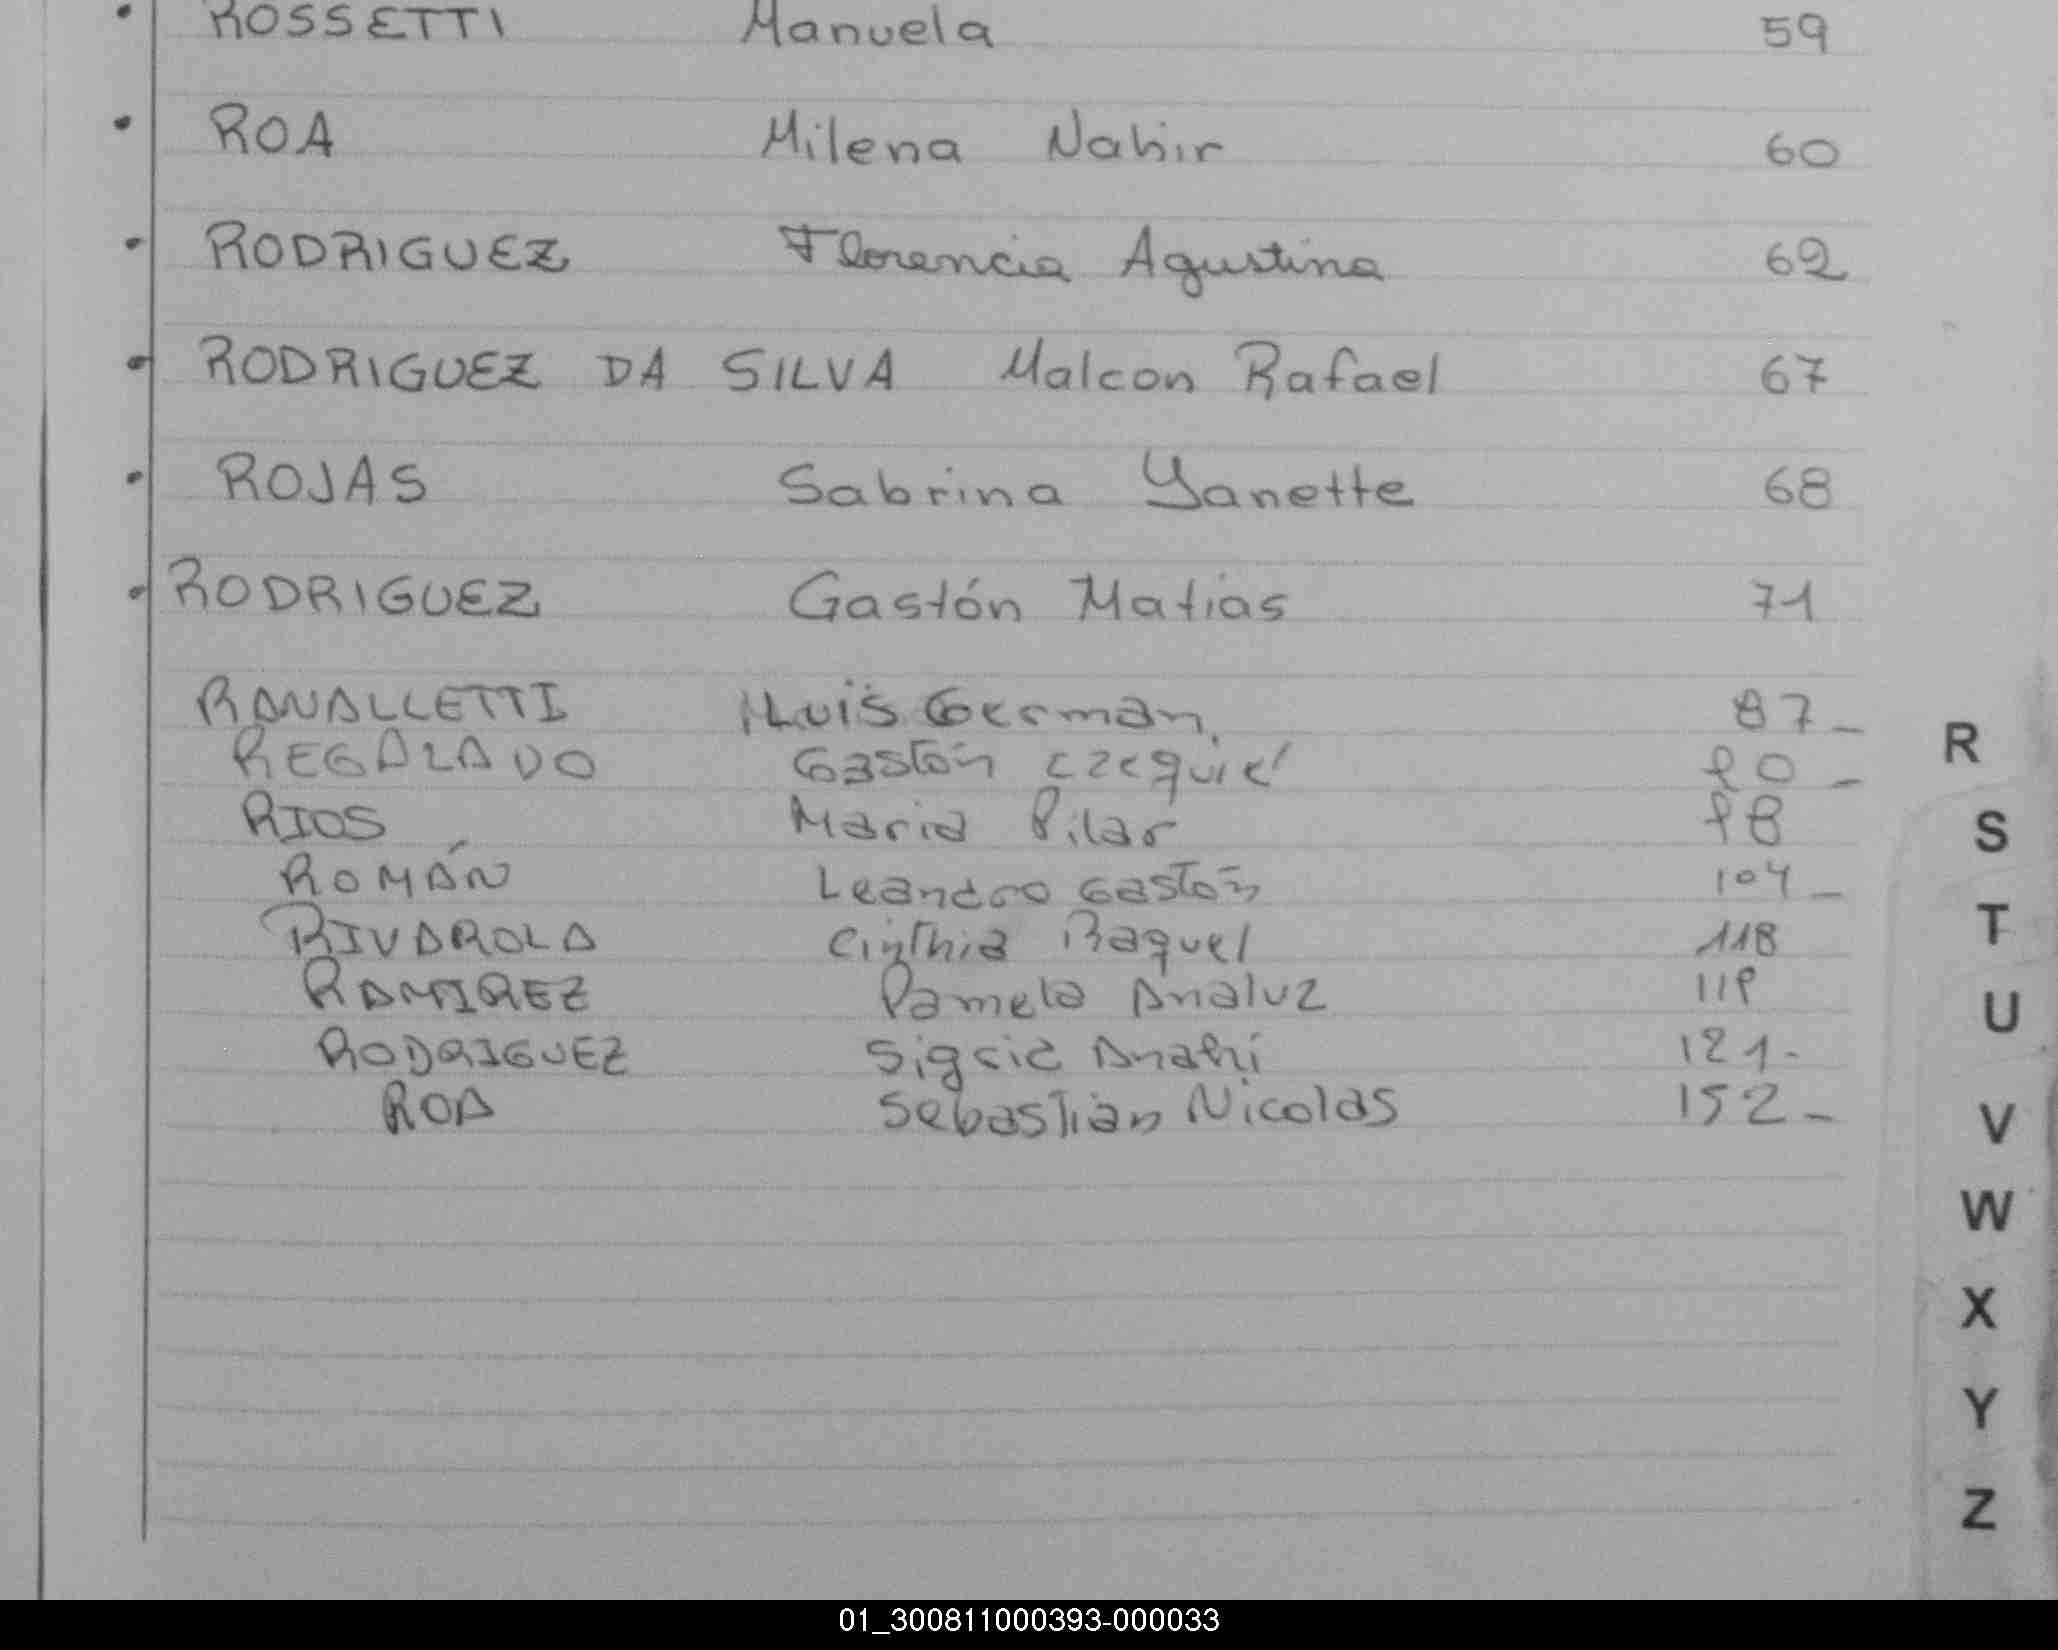 ROSSETTI Manuela 59
ROA Milena Nahir 60
RODRIGUEZ Florencia Agustina 62
RODRIGUEZ DA SILVA Malcon Rafael 67
ROJAS Sabrina Yanette 68
RODRIGUEZ Gastón Matias 71
RANALLETTI Luis German. 87_
REGALADO Gastón Ezequiel 90_
RIOS Maria Pilar 98
ROMÁN Leandro Gastón 104_
RIVAROLA Cinthia Raquel 118
RAMIREZ Pamela Analuz 119
RODRIGUEZ Sigrid Anahí 121-
ROA Sebastián Nicolas 152_
R
S
T
U
V
W
X
Y
Z
01_300811000393-000033